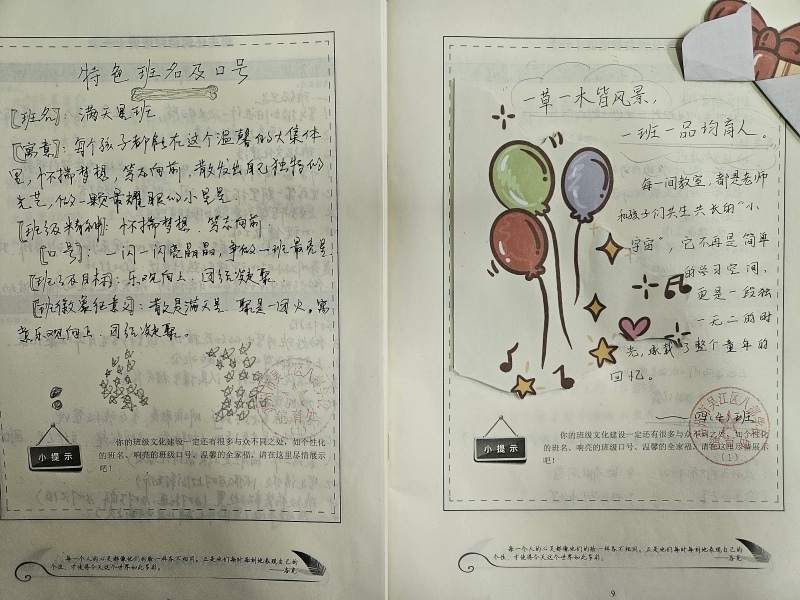 特色班名及口号
[班名]：满天星班
[寓意]：每个孩子都能在这个温馨的大集体
里，怀揣梦想，笃志向前，散发出自己独特的
光芒，做一颗最耀眼的小星星
[班级精神]：怀揣梦想，笃志向前
[口号]：一闪一闪亮晶晶，争做一班最亮星
[班级目标]：乐观向上，团结凝聚
[班徽象征意义]：散是满天星，聚是一团火，寓
意乐观向上，团结凝聚。
小提示
你的班级文化建设一定还有很多与众不同之处，如个性化
的班名、响亮的班级口号、温馨的全家福，请在这里尽情展示
吧！
每一个人的心灵都像他们的脸一样各不相同。正是他们每时每刻地表现自己的
个性，才使得今天这个世界如此多彩。
一草一木皆风景，
一班一品均育人。
每一间教室，都是老师
和孩子们共生共长的“小
宇宙”，它不再是简单
的学习空间，
更是一段独
一无二的时
光，承载了整个童年的
回忆。
小提示
你的班级文化建设一定还有很多与众不同之处，如个性化
的班名、响亮的班级口号、温馨的全家福，请在这里尽情展示
吧！
(1)
每一个人的心灵都像他们的脸一样各不相同。正是他们每时每刻地表现自己的
个性，才使得今天这个世界如此多彩。
9